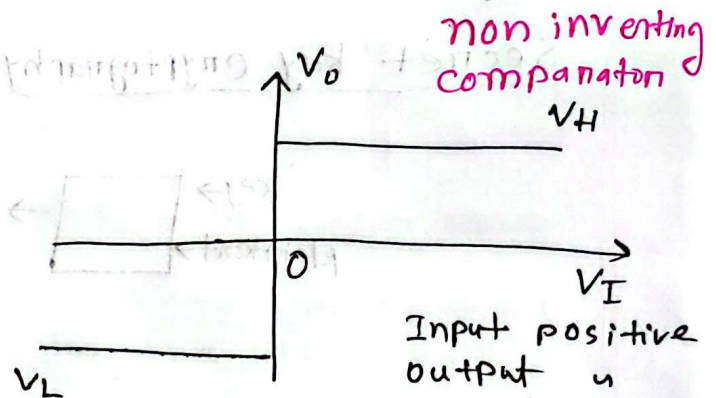 non inverting
comparator
Vo
VH
O
VI
Input positive
output "
VL